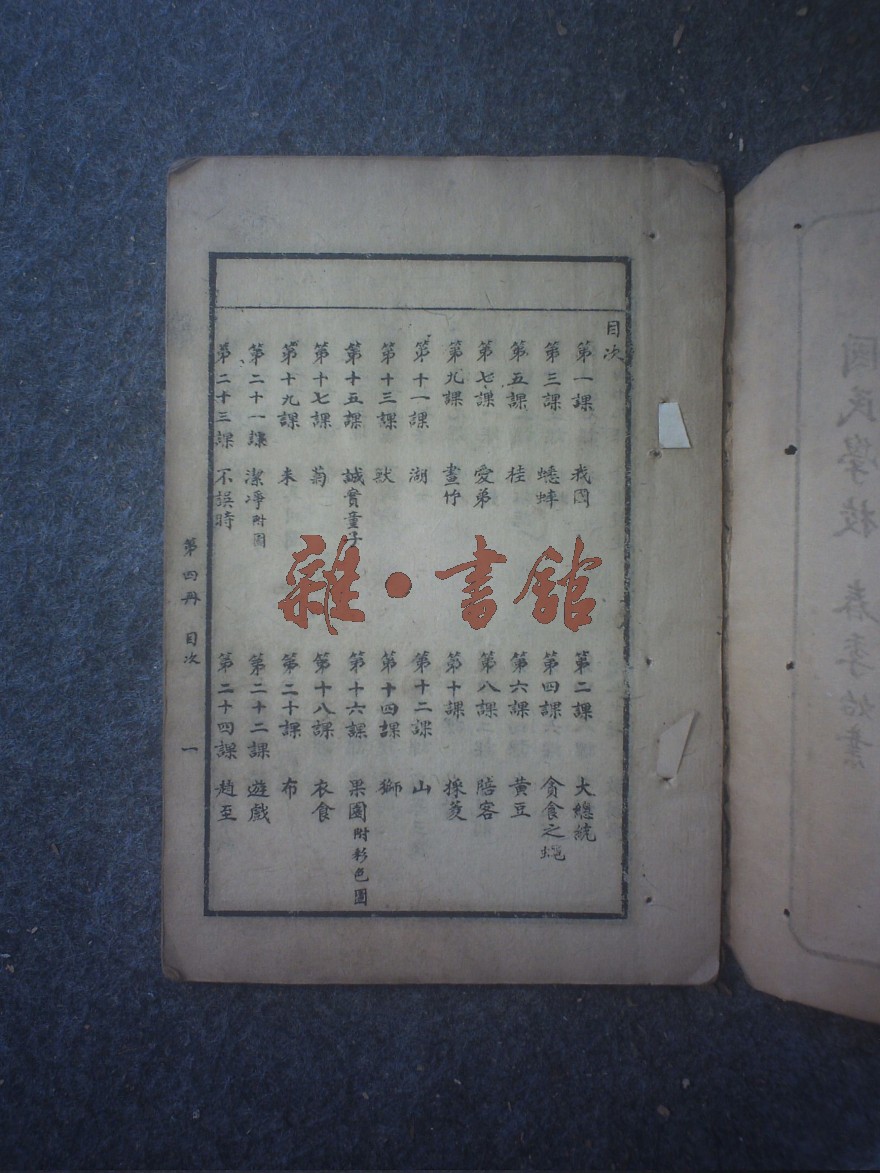 目次
第一課 我國
第二課 大總統
第三課 蟋蟀
第四課 貪食之蠅
第五課 桂
第六課 黄豆
第七課 愛弟
第八課 陪客
第九課 畫竹
第十課 採菱
第十一課 湖
第十二課 山
第十三課 獸
第十四課 獅
第十五課 誠實童子
第十六課 果園附彩色圖
第十七課 菊
第十八課 衣食
第十九課
第二十課 布
第二十一課 潔凈附圖
第二十二課 遊戲
第二十三課 不誤時
第二十四課 趙至
第四册 目次 一
雜·書館
國民學校 春季始業